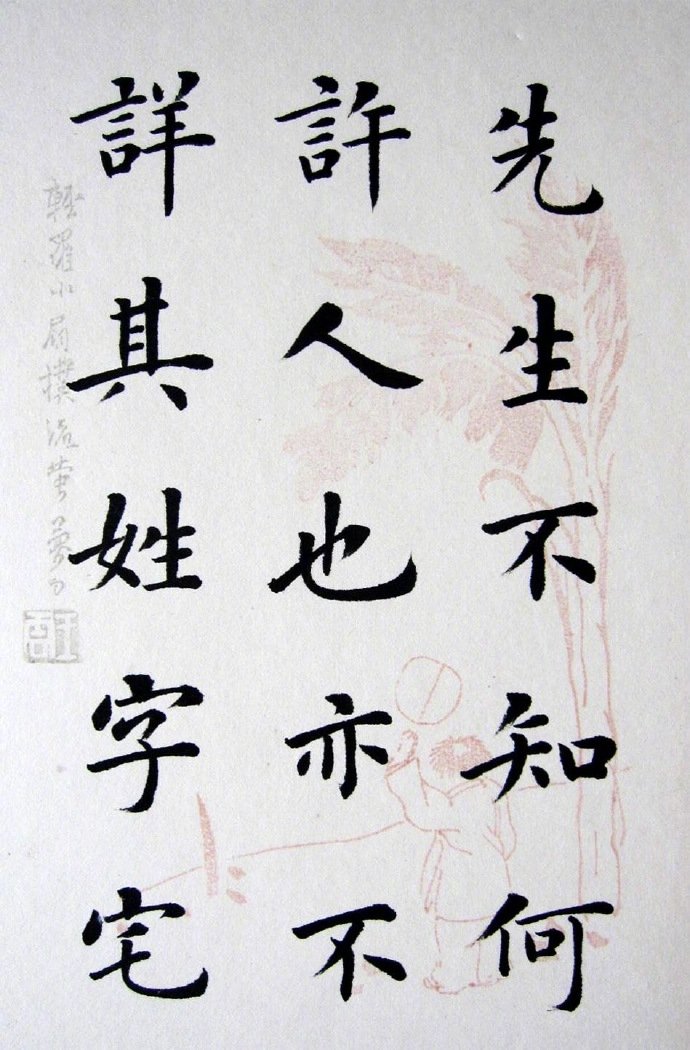 先生不知何
許人也亦不
詳其姓字宅
輕羅小扇撲流螢